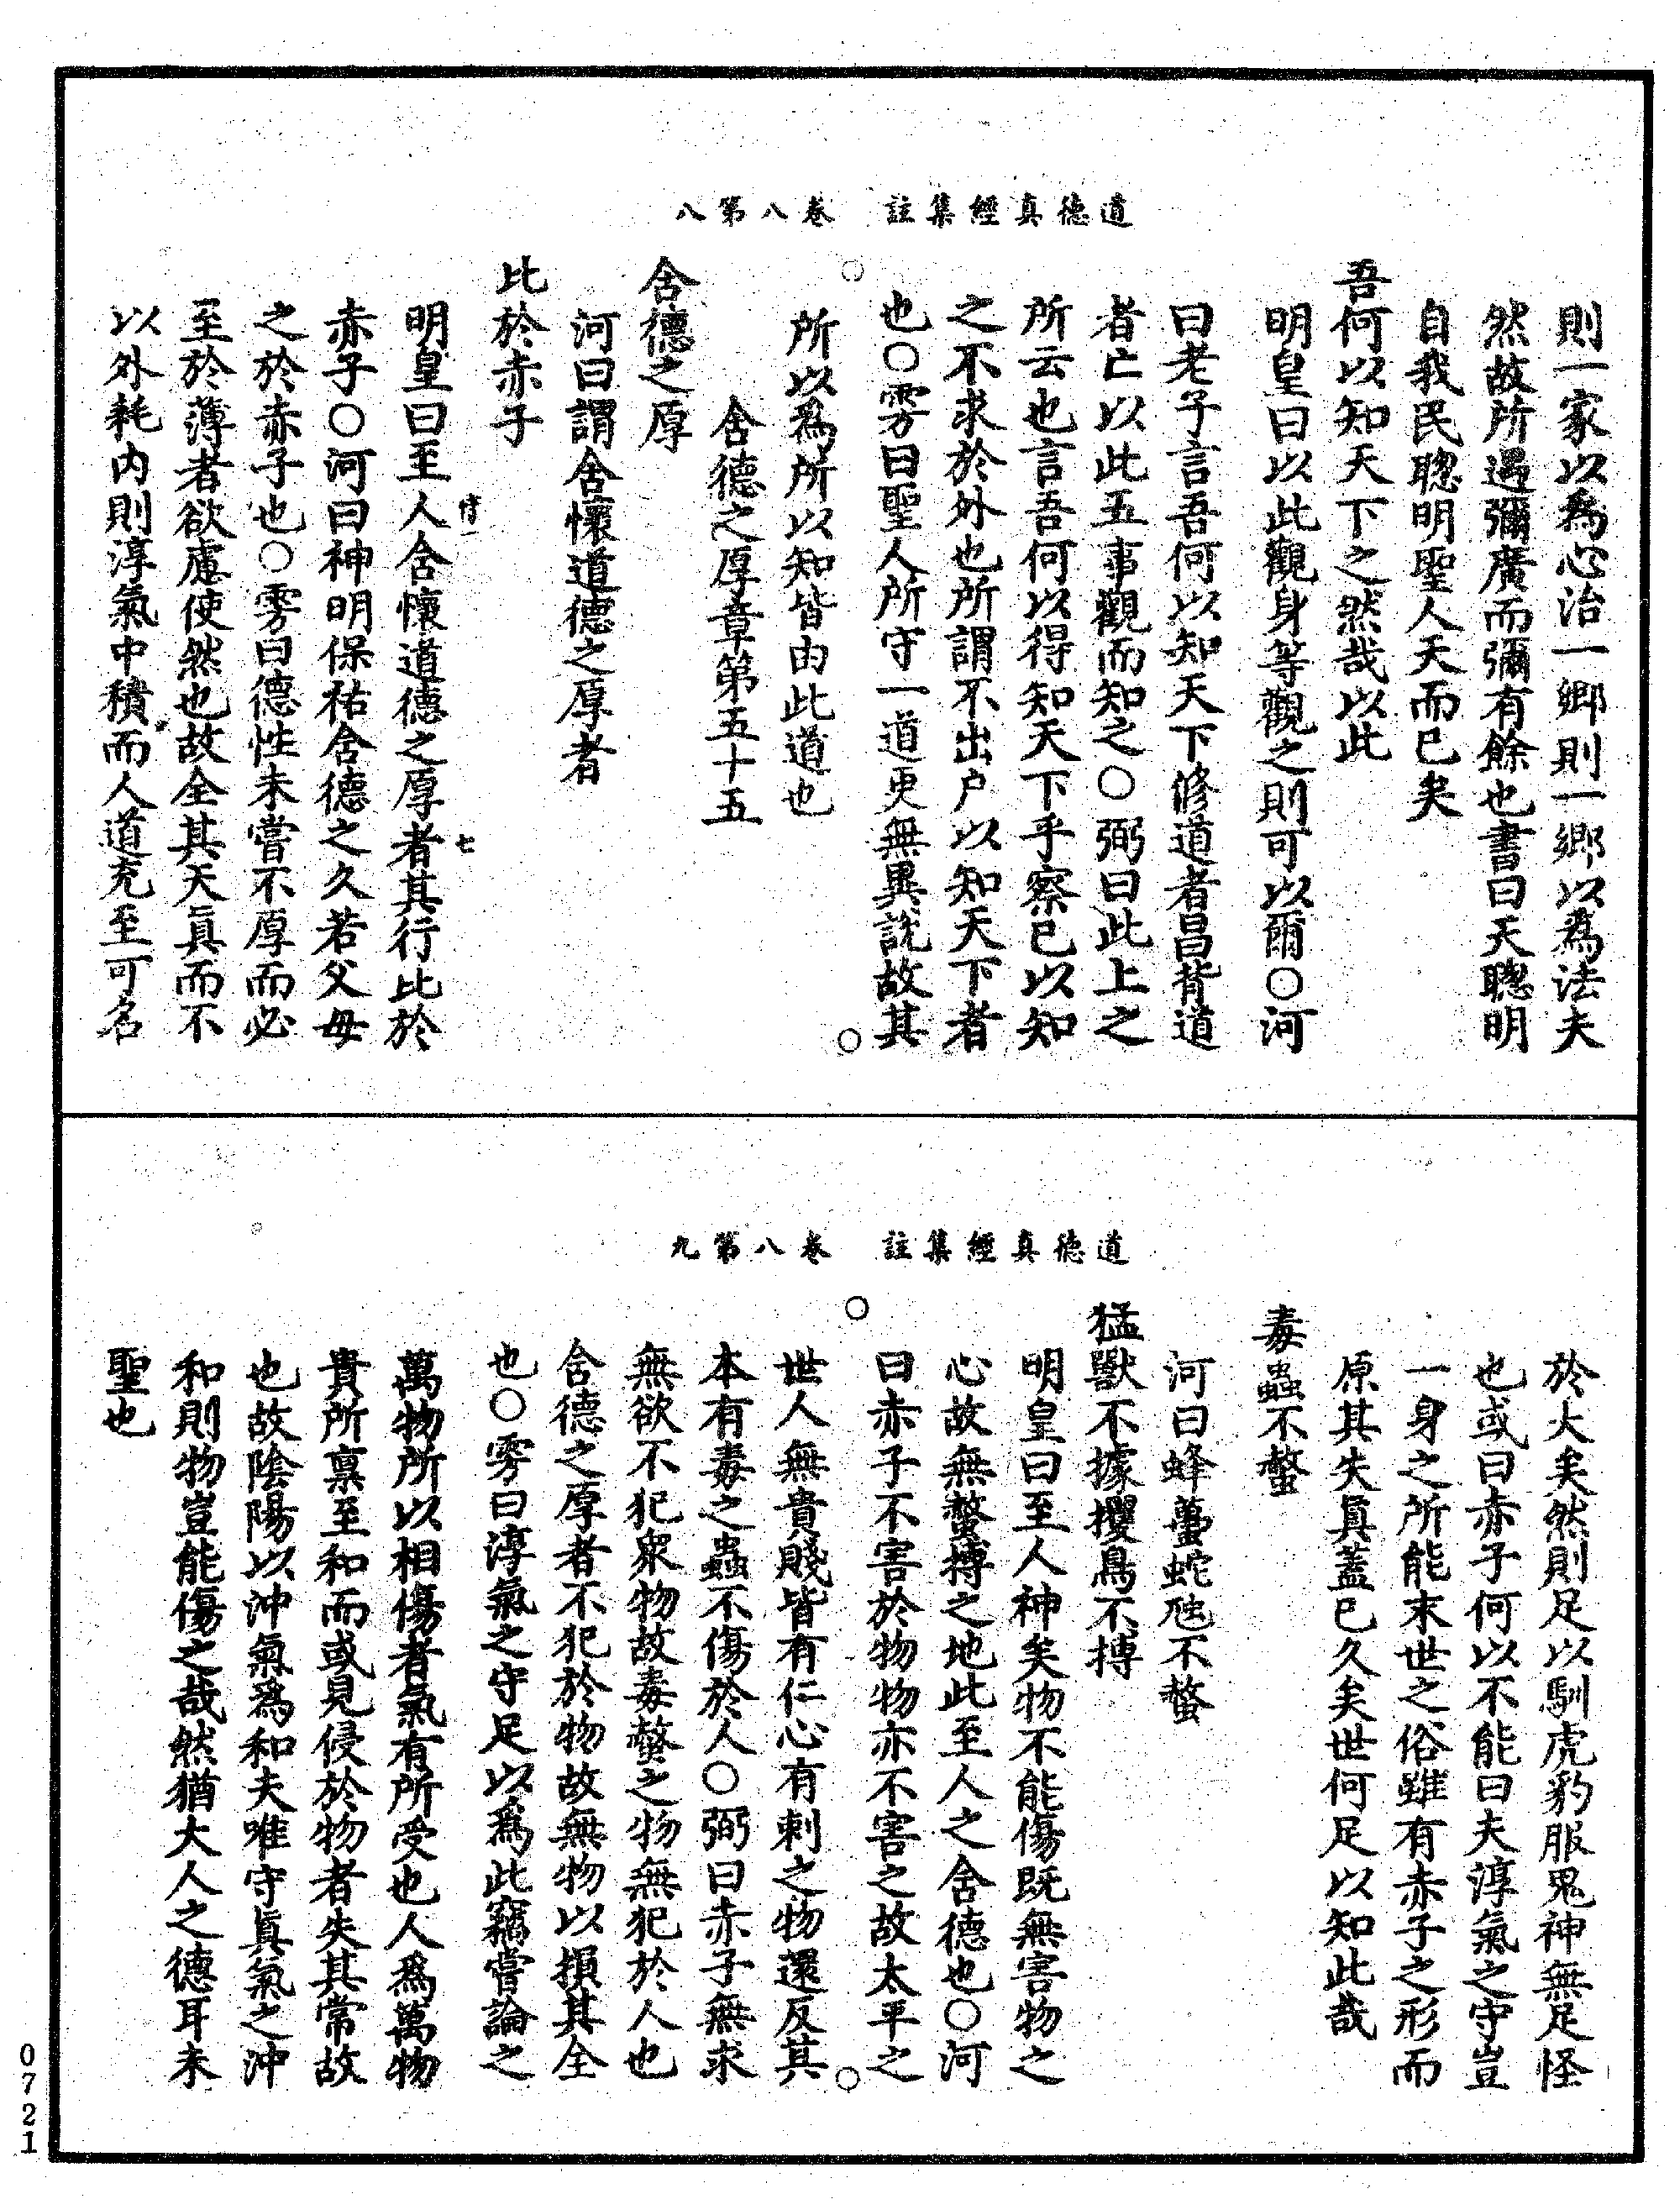 道德真經集註　卷八第八
則一家以為心治一鄉則一鄉以為法夫
然故所過彌廣而彌有餘也書曰天聰明
自我民聰明聖人天而已矣
吾何以知天下之然哉以此
明皇曰以此觀身等觀之則可以爾○河
曰老子言吾何以知天下修道者昌背道
者亡以此五事觀而知之○弼曰此上之
所云也言吾何以得知天下乎察已以知
之不求於外也所謂不出户以知天下者
也○雱曰聖人所守一道更無異說故其
所以為所以知皆由此道也
含德之厚章第五十五
含德之厚
河曰謂含懷道德之厚者
比於赤子
明皇曰至人含懷道德之厚者其行比於
七
赤子○河曰神明保祐含德之久若父母
之於赤子也○雱曰德性未嘗不厚而必
至於薄者欲慮使然也故全其天真而不
以外耗內則淳氣中積而人道充至可名
道德真經集註　卷八第九
於大矣然則足以馴虎豹服鬼神無足怪
也或曰赤子何以不能曰夫淳氣之守豈
一身之所能末世之俗雖有赤子之形而
原其失真蓋已久矣世何足以知此哉
毒蟲不螫
河曰蜂蠆蛇虺不螫
猛獸不據攫鳥不搏
明皇曰至人神矣物不能傷既無害物之
心故無螫搏之地此至人之含德也○河
曰赤子不害於物物亦不害之故太平之
世人無貴賤皆有仁心有刺之物還反其
本有毒之蟲不傷於人○弼曰赤子無求
無欲不犯衆物故毒螫之物無犯於人也
含德之厚者不犯於物故無物以損其全
也○雱曰淳氣之守足以為此竊嘗論之
萬物所以相傷者氣有所受也人為萬物
貴所禀至和而或見侵於物者失其常故
也故陰陽以沖氣為和夫唯守真氣之沖
和則物豈能傷之哉然猶大人之德耳未
聖也
0721